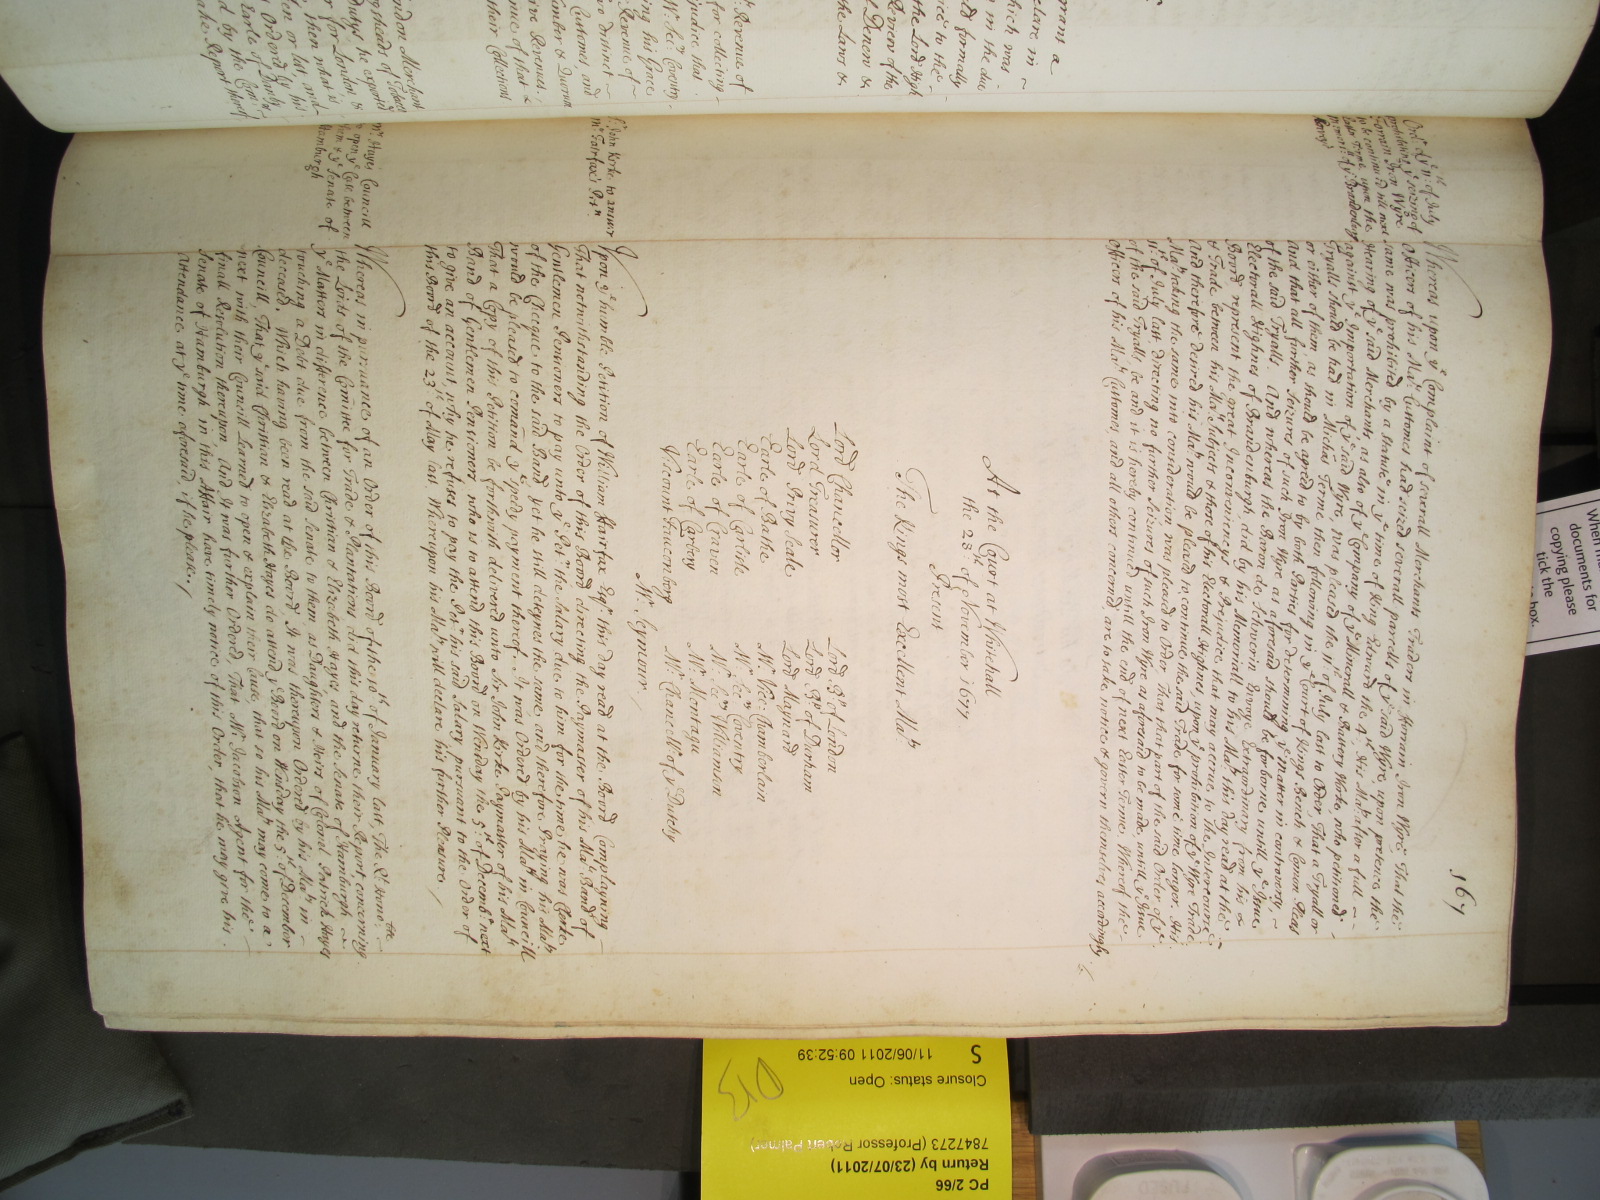 167
Ord.r of y.e 11.th of July
prohibiting y.e seizing of
Forrain Iron Wyre
to be continued till next
Easter Terme upon the
Memori.ll of y.e Brandenburg
Envoy
Whereas upon y.e Complaint of severall Merchants Traders in forrain Iron Wyre That the
Officers of his Ma.ts Customes had seized several parcells of y.e said Wyre, upon pretence the
same was prohibited by a Statute in y.e time of King Edward the 4.th His Ma.ty after a full
Hearing of y.e said Merchants as also of y.e Company of y.e Minerall & Battery Works, who petitioned
against y.e Importation of y.e said Wyre, was pleased the 11.th of July last to Order, That a Tryall or
Tryalls should be had in Michās Terme then following in y.e Court of Kings Bench, & Comon Pleas
or either of them, as should be agreed to by both Parties for determining y.e matter in controversy,
and that all further Seizures of such Iron Wyre as aforesaid should be forborne, untill y.e Issue
of the said Tryalls. And whereas the Baron de Schwerin Envoye Extraordinary from his
Electorall Highnes of Brandenburgh, did by his Memoriall to his Ma.ty this day read at the
Board represent the great Inconveniency & Prejudice, that may accrue, to The Intercourse
& Trade between his Ma.ts Subjects & those of his Electorall Highnes, upon y.e prohibition of y.e Wyre Trade,
And therefore desired his Ma.ty would be pleased to continue the said Trade for some time longer, His
Ma.ty taking the same into consideration was pleased to Order, That that part of the said Order of y.e
11.th of July last directing no further Seizures of such Iron Wyre as aforesaid to be made, untill y.e Issue
of the said Tryalls, be and it is hereby continued untill the end of next Easter Terme, Whereof the
Officers of his Ma.ts Customes, and all others concerned, are to take notice & govern themselves accordingly.
At the Court at Whitehall
the 28.th of November 1677
Present
The Kings most Excellent Ma.ty
Lord Chancellor Lord B.p of London
Lord Treasurer Lord B.p of Durham
Lord Privy Seale Lord Maynard
Earle of Bathe M.r Vice Chamberlan
Earle of Carlisle M.r Sec.ry Coventry
Earle of Craven M.r Sec.ry Williamson
Earle of Carbery M.r Montagu
Viscount Fauconberg M.r Chancell.r of y.e Dutchy
M.r Seymour.
S.r John Kirke to answer
M.r Fairfax's Pet.n
Upon y.e humble Petition of William Fairfax Esq.r this day read at the Board Complayning
That notwithstanding the Order of this Board directing the Paymaster of his Ma.ts Band of
Gentlemen Pensioners to pay unto y.e Pet.r the Salary due to him for the time he was Clerke
of the Checque to the said Band yet he still deteynes the same, and therefore Praying his Ma.ty
would be pleased to comand y.e speedy payment thereof. It was Ordered by his Ma.ty in Councill
That a Copy of this Petition be forthwith delivered unto S.r John Kirke, Paymaster of his Ma.ts
Band of Gentlemen Pensioners who is to attend this Board on Wensday the 5.th of Decemb.r next
to give an account, why he refuses to pay the Pet.r his said Salary pursuant to the Order of
this Board of the 23.th of May last Whereupon his Ma.ty will declare his further Pleasure.
M.r Hayes Councill
to open y.e Case between
them & y.e Senate of
Hamburgh
Whereas in pursuance of an Order of this Board of the 10.th of January last, The R.t Hono.ble
the Lords of the Comittee for Trade & Plantations did this day returne their Report concerning
y.e Matters in difference between Christian & Elizabeth Hayes and the Senate of Hamburgh
touching a Debt due from the said Senate to them as Daughters & Heirs of Colonel Patrick Hayes
deceased, Which having been read at the Board It was thereupon Ordered by his Ma.ty in
Councill, That y.e said Christian & Elizabeth Hayes do attend y.e Board on Wensday the 5.th of December
next with their Councill Learned to open & explain their Case, that so his Ma.ty may come to a
finall Resolution thereupon And It was further Ordered, That M.r Jacobsen Agent for the
Senate of Hamburgh in this Affair have timely notice of this Order, that he may give his
attendance at y.e time aforesaid, if he please.
documents for
copying please
tick the
box.
PC 2/66
Return by (23/07/2011)
7847273 (Professor Robert Palmer)
Closure status: Open
11/06/2011 09:52:39
S